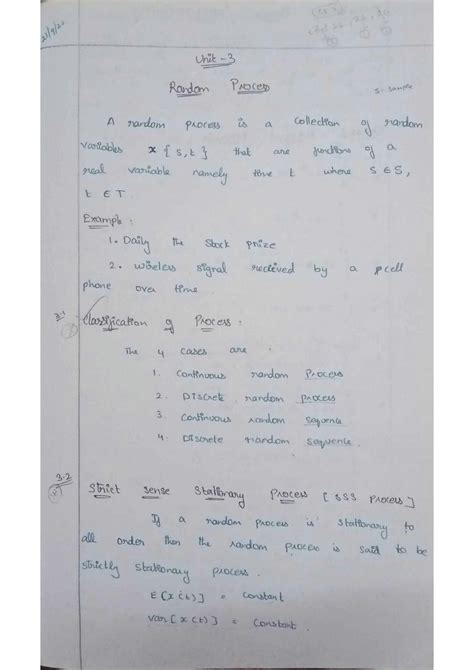 Unit - 3
Random Process
S - Sample
A random process is a collection of random
variables X { S, t } that are functions of a
real variable namely time t where S ∈ S,
t ∈ T.
Example :
1. Daily the Stock prize
2. wireless signal recieved by a cell
phone over time.
3.1
Classification of Process :
The 4 cases are
1. Continuous random Process
2. Discrete random Process
3. Continuous random Sequence
4. Discrete random Sequence.
3.2
Strict sense Stationary Process [ SSS Process ]
If a random process is stationary to
all order then the random process is said to be
strictly stationary process.
E [ X (t) ] = Constant
Var [ X (t) ] = Constant.